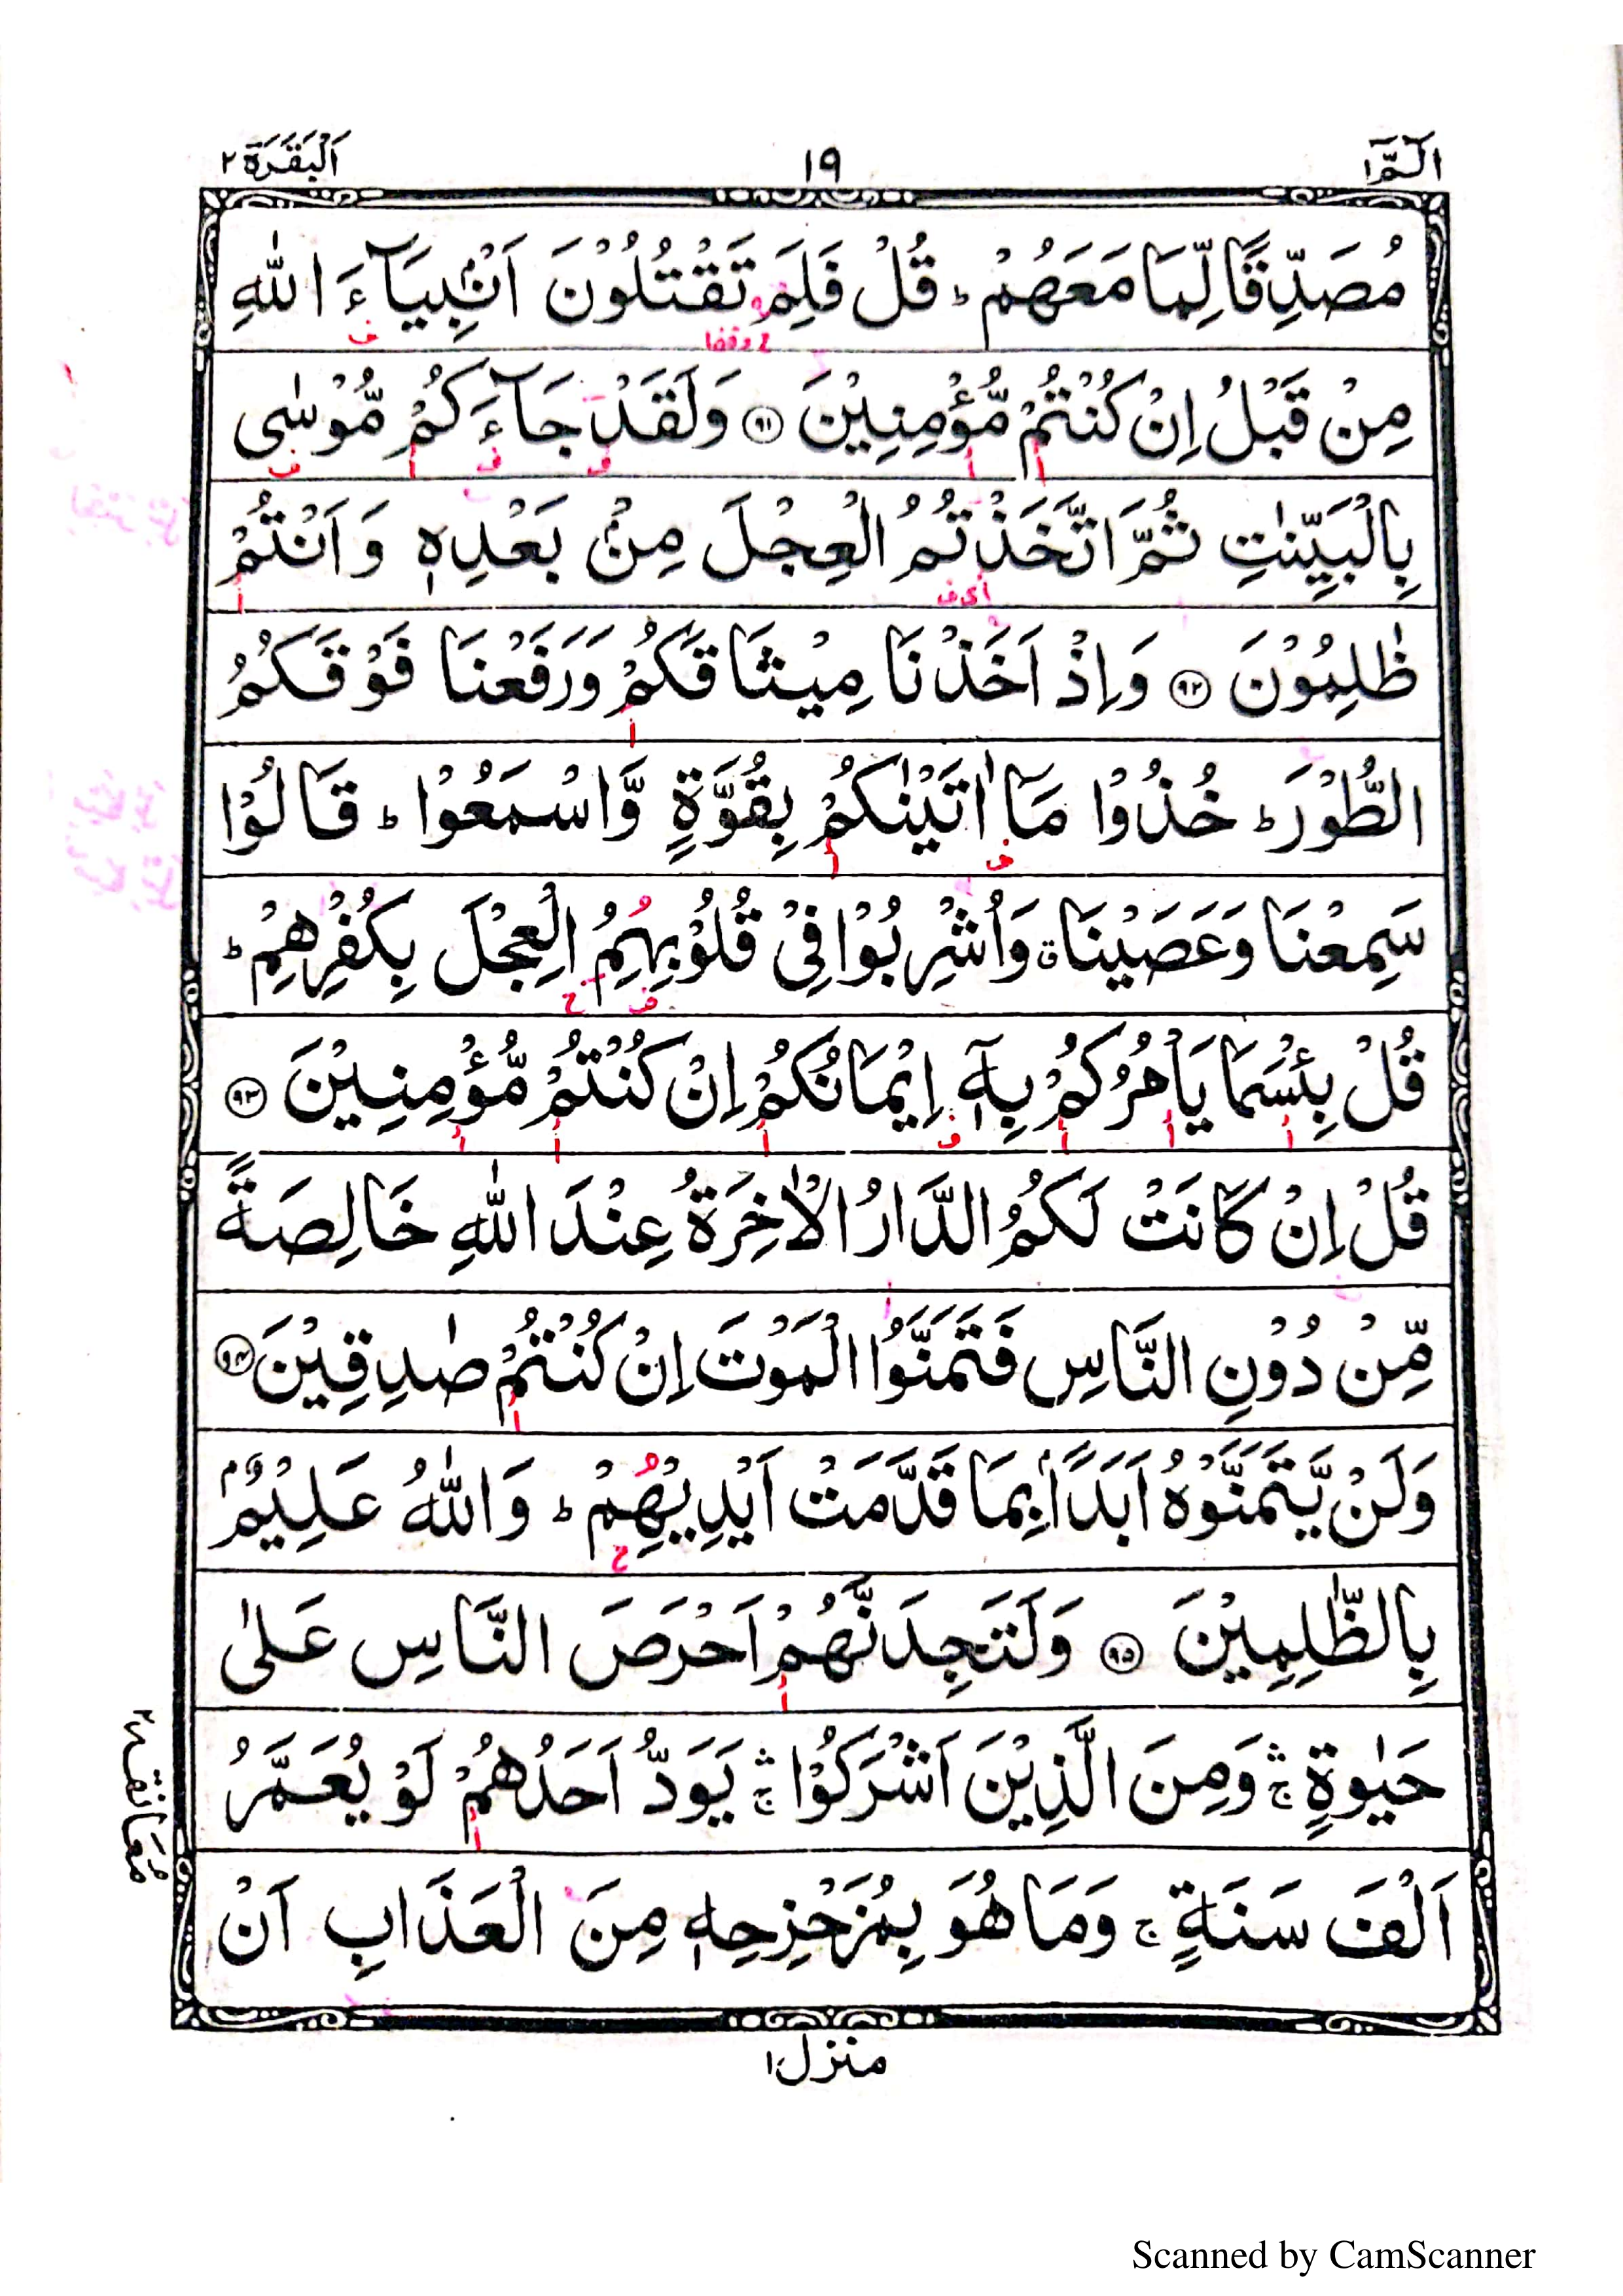 الٓمّٓ ١
١٩
اَلْبَقَرَة ٢
مُصَدِّقًا لِّمَا مَعَهُمْ ؕ قُلْ فَلِمَ تَقْتُلُوْنَ اَنْۢبِيَآءَ اللّٰهِ
ف ح وقفا
مِنْ قَبْلُ اِنْ كُنْتُمْ مُّؤْمِنِيْنَ ﴿۹۱﴾ وَلَقَدْ جَآءَكُمْ مُّوْسٰى
بِالْبَيِّنٰتِ ثُمَّ اتَّخَذْتُمُ الْعِجْلَ مِنْۢ بَعْدِهٖ وَ اَنْتُمْ
ظٰلِمُوْنَ ﴿۹۲﴾ وَاِذْ اَخَذْنَا مِيْثَاقَكُمْ وَرَفَعْنَا فَوْقَكُمُ
الطُّوْرَ ؕ خُذُوْا مَاۤ اٰتَيْنٰكُمْ بِقُوَّةٍ وَّاسْمَعُوْا ؕ قَالُوْا
سَمِعْنَا وَعَصَيْنَا ۗ وَاُشْرِبُوْا فِيْ قُلُوْبِهِمُ الْعِجْلَ بِكُفْرِهِمْ ؕ
قُلْ بِئْسَمَا يَاْمُرُكُمْ بِهٖۤ اِيْمَانُكُمْ اِنْ كُنْتُمْ مُّؤْمِنِيْنَ ﴿۹۳﴾
قُلْ اِنْ كَانَتْ لَكُمُ الدَّارُ الْاٰخِرَةُ عِنْدَ اللّٰهِ خَالِصَةً
مِّنْ دُوْنِ النَّاسِ فَتَمَنَّوُا الْمَوْتَ اِنْ كُنْتُمْ صٰدِقِيْنَ ﴿۹۴﴾
وَلَنْ يَّتَمَنَّوْهُ اَبَدًاۢ بِمَا قَدَّمَتْ اَيْدِيْهِمْ ؕ وَاللّٰهُ عَلِيْمٌۢ
بِالظّٰلِمِيْنَ ﴿۹۵﴾ وَلَتَجِدَنَّهُمْ اَحْرَصَ النَّاسِ عَلٰى
حَيٰوةٍ ۛۚ وَمِنَ الَّذِيْنَ اَشْرَكُوْا ۛۚ يَوَدُّ اَحَدُهُمْ لَوْ يُعَمَّرُ
اَلْفَ سَنَةٍ ۚ وَمَا هُوَ بِمُزَحْزِحِهٖ مِنَ الْعَذَابِ اَنْ
مُعَانَقَة ٢
منزل ١
Scanned by CamScanner